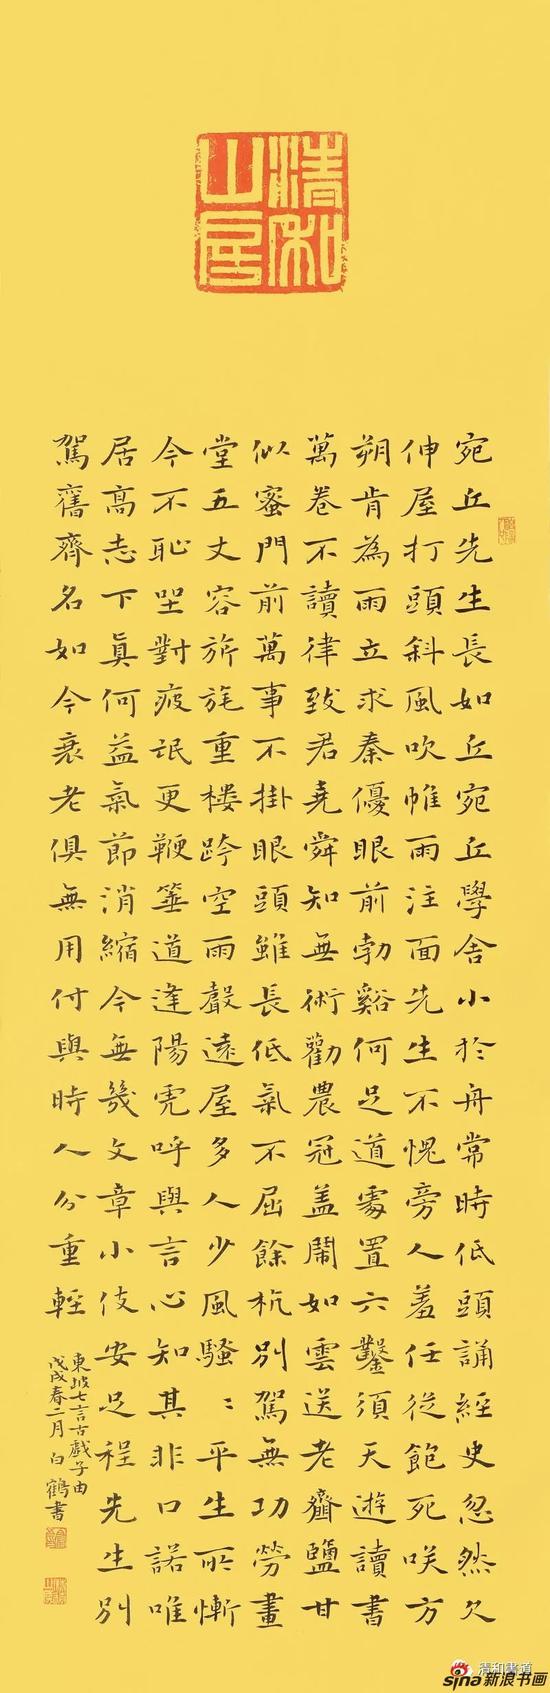 清和
山房
宛丘先生長如丘宛丘學舍小於舟常時低頭誦經史忽然欠
伸屋打頭斜風吹帷雨注面先生不愧旁人羞任從飽死咲方
朔肯為雨立求秦優眼前勃谿何足道處置六鑿須天遊讀書
萬卷不讀律致君堯舜知無術勸農冠盖鬧如雲送老齏鹽甘
似蜜門前萬事不掛眼頭雖長低氣不屈餘杭別駕無功勞畫
堂五丈容旂旄重樓跨空雨聲遠屋多人少風騷〻平生所慚
今不恥坐對疲氓更鞭箠道逢陽虎呼與言心知其非口諾唯
居高志下真何益氣節消縮今無幾文章小伎安足程先生別
駕舊齊名如今衰老俱無用付與時人分重輕
東坡七言古戲子由
戊戌春二月白鶴書
清和書道
sina新浪书画